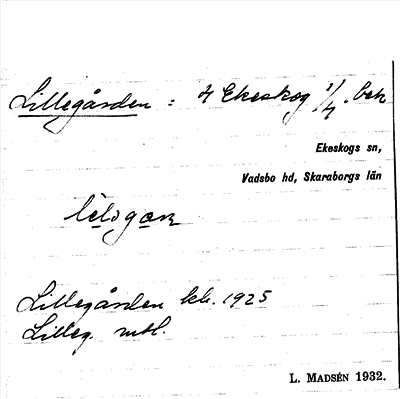 Lillegården : 4 Ekeskog 1/4, bek
Ekeskogs sn,
Vadsbo hd, Skaraborgs län
Lillegården kk. 1925
Lilleg. mtl.
L. MADSÉN 1932.